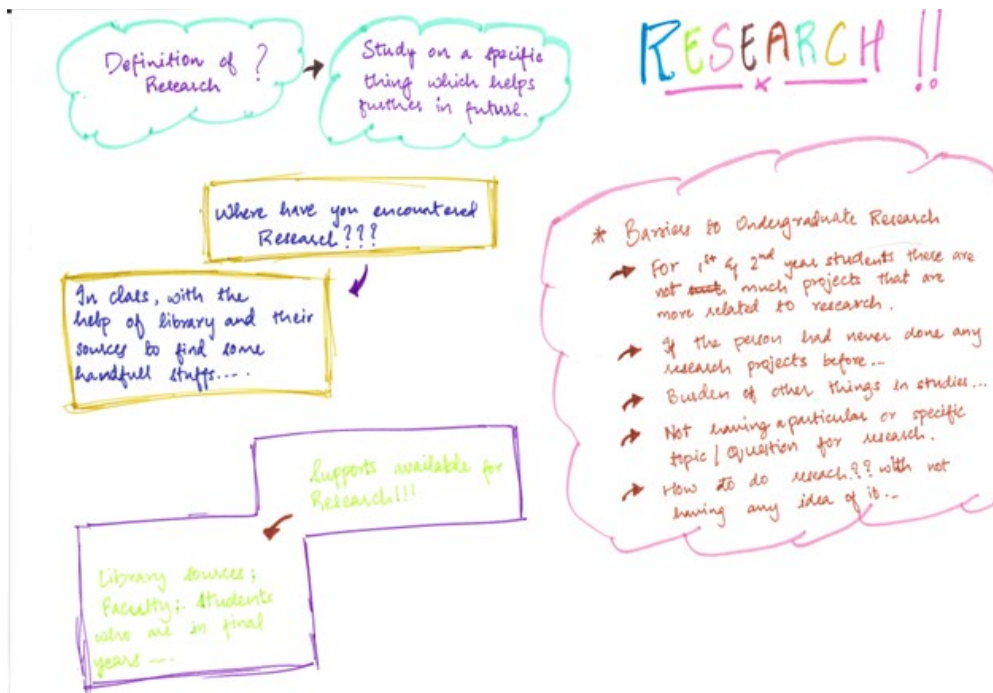 RESEARCH!!
Definition of ?
Research
Study on a specific
thing which helps
further in future.
Where have you encountered
Research???
In class, with the
help of library and their
sources to find some
handfull stuffs....
Supports available for
Research!!!
Library sources;
Faculty; students
who are in final
years ....
* Barriers to Undergraduate Research
For 1st & 2nd year students there are
not much projects that are
more related to research.
If the person had never done any
research projects before...
Burden of other things in studies...
Not having a particular or specific
topic / Question for research.
How to do reseach?? with not
having any idea of it...